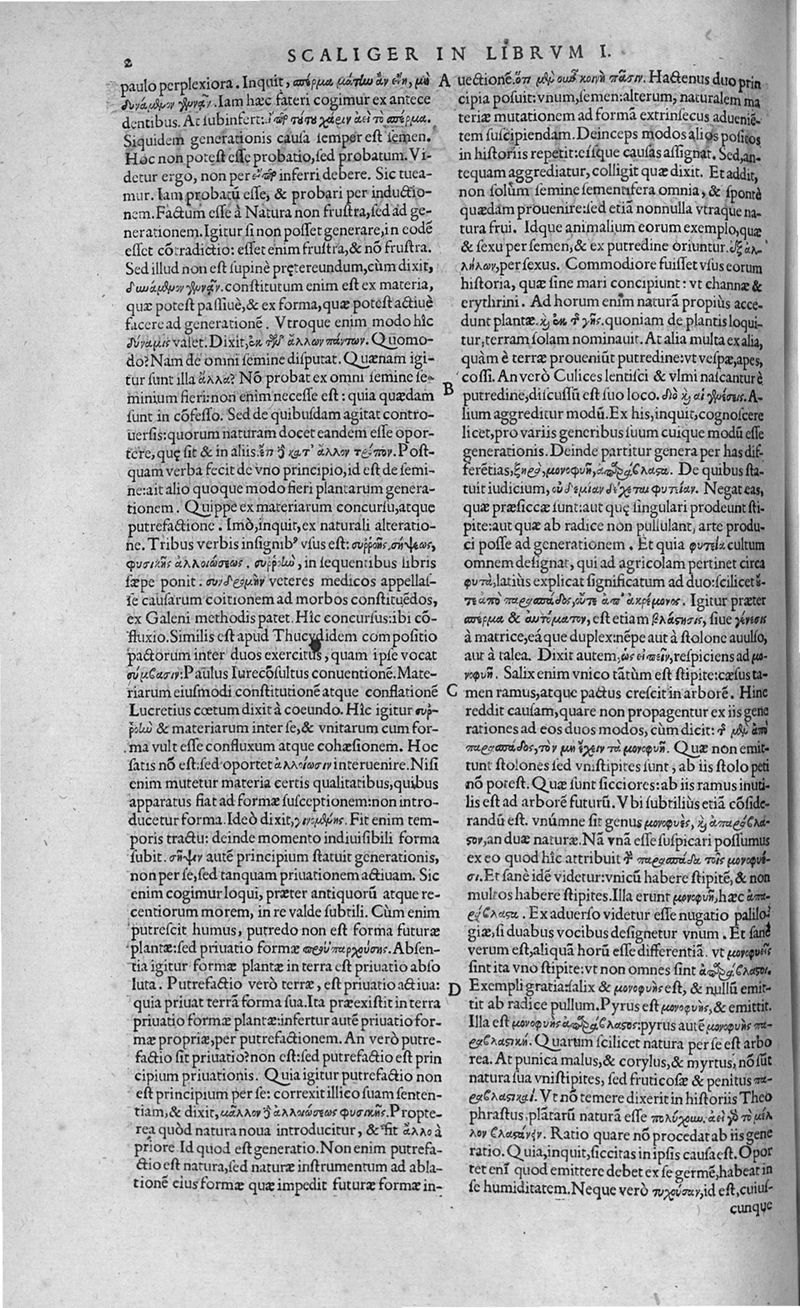 2
SCALIGER IN LIBRVM I.
paulo perplexiora. Inquit, σπέρμα μάτην ἂν εἴη, μὴ
δυνάμενον γεννᾶν. Iam hæc fateri cogimur ex antece
dentibus. At subinfert: ὥσπερ τούτου χάριν ἀεὶ τὸ σπέρμα.
Siquidem generationis causa semper est semen.
Hoc non potest esse probatio, sed probatum. Vi-
detur ergo, non per inferri debere. Sic tuea-
mur. Iam probatũ esse, & probari per inductio-
nem. Factum esse à Natura non frustra, sed ad ge-
nerationem. Igitur si non posset generare, in eodẽ
esset cõtradictio: esset enim frustra, & nõ frustra.
Sed illud non est supinè prętereundum, cùm dixit,
δυνάμενον γεννᾶν. constitutum enim est ex materia,
quæ potest passiuè, & ex forma, quæ potest actiuè
facere ad generationẽ. Vtroque enim modo hîc
δύναμις valet. Dixit, ἐκ τῶν ἄλλων πάντων. Quomo-
do? Nam de omni semine disputat. Quænam igi-
tur sunt illa ἄλλα? Nõ probat ex omni semine se-
minium fieri: non enim necesse est: quia quædam
sunt in cõfesso. Sed de quibusdam agitat contro-
uersis: quorum naturam docet eandem esse opor-
tere, quę sit & in aliis. ἔτι δὲ κατ' ἄλλον τρόπον. Post-
quam verba fecit de vno principio, id est de semi-
ne: ait alio quoque modo fieri plantarum genera-
tionem. Quippe ex materiarum concursu, atque
putrefactione. Imò, inquit, ex naturali alteratio-
ne. Tribus verbis insignibꝰ vsus est: συρροῆς, σήψεως,
φυσικῆς ἀλλοιώσεως. συρροὴν, in sequentibus libris
sæpe ponit. συνδρομὴν veteres medicos appellas-
se causarum coitionem ad morbos constituẽdos,
ex Galeni methodis patet. Hîc concursus: ibi cõ-
fluxio. Similis est apud Thucydidem compositio
pactorum inter duos exercitus, quam ipse vocat
σύμβασιν: Paulus Iurecõsultus conuentionẽ. Mate-
riarum eiusmodi constitutionẽ atque conflationẽ
Lucretius cœtum dixit à coeundo. Hîc igitur συρ-
ροὴν & materiarum inter se, & vnitarum cum for-
ma vult esse confluxum atque cohæsionem. Hoc
satis nõ est: sed oportet ἀλλοίωσιν interuenire. Nisi
enim mutetur materia certis qualitatibus, quibus
apparatus fiat ad formæ susceptionem: non intro-
ducetur forma. Ideò dixit, γινομένης. Fit enim tem-
poris tractu: deinde momento indiuisibili forma
subit. σῆψιν autẽ principium statuit generationis,
non per se, sed tanquam priuationem actiuam. Sic
enim cogimur loqui, præter antiquorũ atque re-
centiorum morem, in re valde subtili. Cùm enim
putrescit humus, putredo non est forma futuræ
plantæ: sed priuatio formæ προϋπαρχούσης. Absen-
tia igitur formæ plantæ in terra est priuatio abso
luta. Putrefactio verò terræ, est priuatio actiua:
quia priuat terrã forma sua. Ita præexistit in terra
priuatio formæ plantæ: infertur autẽ priuatio for-
mæ propriæ, per putrefactionem. An verò putre-
factio sit priuatio? non est: sed putrefactio est prin
cipium priuationis. Quia igitur putrefactio non
est principium per se: correxit illico suam senten-
tiam, & dixit, μᾶλλον δὲ ἀλλοιώσεως φυσικῆς. Propte-
rea quòd natura noua introducitur, & fit ἄλλο à
priore Id quod est generatio. Non enim putrefa-
ctio est natura, sed naturæ instrumentum ad abla-
tionẽ eius formæ quæ impedit futuræ formæ in-
A
B
C
D
uectionẽ. ὅτι μὲν οὖν κοινὴ πᾶσιν. Hactenus duo prin
cipia posuit: vnum, semen: alterum, naturalem ma
teriæ mutationem ad formã extrinsecus adueniẽ-
tem suscipiendam. Deinceps modos alios positos
in historiis repetit: eisque causas assignat. Sed, an-
tequam aggrediatur, colligit quæ dixit. Et addit,
non solùm semine sementifera omnia, & spontè
quædam prouenire: sed etiã nonnulla vtraque na-
tura frui. Idque animalium eorum exemplo, quæ
& sexu per semen, & ex putredine oriuntur. ἐξ ἀλ-
λήλων, per sexus. Commodiore fuisset vsus eorum
historia, quæ sine mari concipiunt: vt channæ &
erythrini. Ad horum enim naturã propiùs acce-
dunt plantæ. καὶ ἐκ τῆς γῆς. quoniam de plantis loqui
tur, terram solam nominauit. At alia multa ex alia,
quàm è terræ proueniũt putredine: vt vespæ, apes,
cossi. An verò Culices lentisci & vlmi nascantur è
putredine, discussũ est suo loco. διὸ καὶ αἱ γενέσεις. A-
lium aggreditur modũ. Ex his, inquit, cognoscere
licet, pro variis generibus suum cuique modũ esse
generationis. Deinde partitur genera per has dif-
ferẽtias, ξηρὰ, μονοφυῆ, ἀπαράβλαστα. De quibus sta-
tuit iudicium, οὐδεμίαν δέχεται φυτείαν. Negat eas,
quæ præsiccæ sunt: aut quę singulari prodeunt sti-
pite: aut quæ ab radice non pullulant, arte produ-
ci posse ad generationem. Et quia φυτεία cultum
omnem designat, qui ad agricolam pertinet circa
φυτὰ, latiùs explicat significatum ad duo: scilicet οὔ-
τε ἀπὸ παρασπάδος, οὔτε ἀπ' ἀκρέμονος. Igitur præter
σπέρμα & αὐτόματον, est etiam βλάστησις, siue γένεσις
à matrice, eáque duplex: nẽpe aut à stolone auulso,
aut à talea. Dixit autem, ὡς εἰπεῖν, respiciens ad μο-
νοφυῆ. Salix enim vnico tãtùm est stipite: cæsus ta-
men ramus, atque pactus crescit in arborẽ. Hinc
reddit causam, quare non propagentur ex iis gene
rationes ad eos duos modos, cùm dicit: τὸ μὲν ἀπὸ
παρασπάδος, τὸν μὴ ἔχειν τὰ μονοφυῆ. Quæ non emit-
tunt stolones sed vnistipites sunt, ab iis stolo peti
nõ potest. Quæ sunt sicciores: ab iis ramus inuti-
lis est ad arborẽ futurũ. Vbi subtiliùs etiã cõside-
randũ est. vnúmne sit genus μονοφυὲς, καὶ ἀπαράβλα-
στον, an duæ naturæ. Nã vnã esse suspicari possumus
ex eo quod hîc attribuit τὸ παρασπάδα τοῖς μονοφυέ-
σι. Et sanè idẽ videtur: vnicũ habere stipitẽ, & non
multos habere stipites. Illa erunt μονοφυῆ, hæc ἀπα-
ράβλαστα. Ex aduerso videtur esse nugatio palilo-
giæ, si duabus vocibus designetur vnum. Et sanè
verum est, aliquã horũ esse differentiã. vt μονοφυεῖς
sint ita vno stipite: vt non omnes sint ἀπαράβλαστοι.
Exempli gratia: salix & μονοφυής est, & nullũ emit-
tit ab radice pullum. Pyrus est μονοφυής, & emittit.
Illa est μονοφυὴς ἀπαράβλαστος: pyrus autẽ μονοφυὴς πα-
ραβλαστική. Quarum scilicet natura per se est arbo
rea. At punica malus, & corylus, & myrtus, nõ sũt
natura sua vnistipites, sed fruticosæ & penitus πα-
ραβλαστικαί. Vt nõ temere dixerit in historiis Theo
phrastus, plãtarũ naturã esse πολύχουν. ἀεὶ γὰρ τὸ μέλ-
λον βλαστάνειν. Ratio quare nõ procedat ab iis gene
ratio. Quia, inquit, siccitas in ipsis causa est. Opor
tet enĩ quod emittere debet ex se germẽ, habeat in
se humiditatem. Neque verò τυχοῦσαν, id est, cuius-
cunque